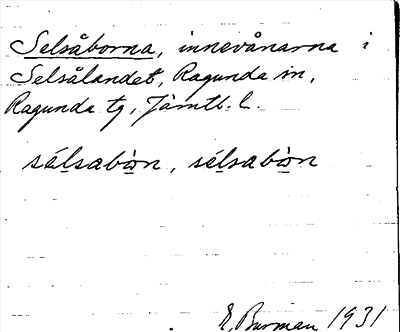 Selsåborna, innevånarna i
Selsålandet, Ragunda sn,
Ragunda tg, Jämtl. l.
sélsabòn, sélsabòn
E, Burman 1931